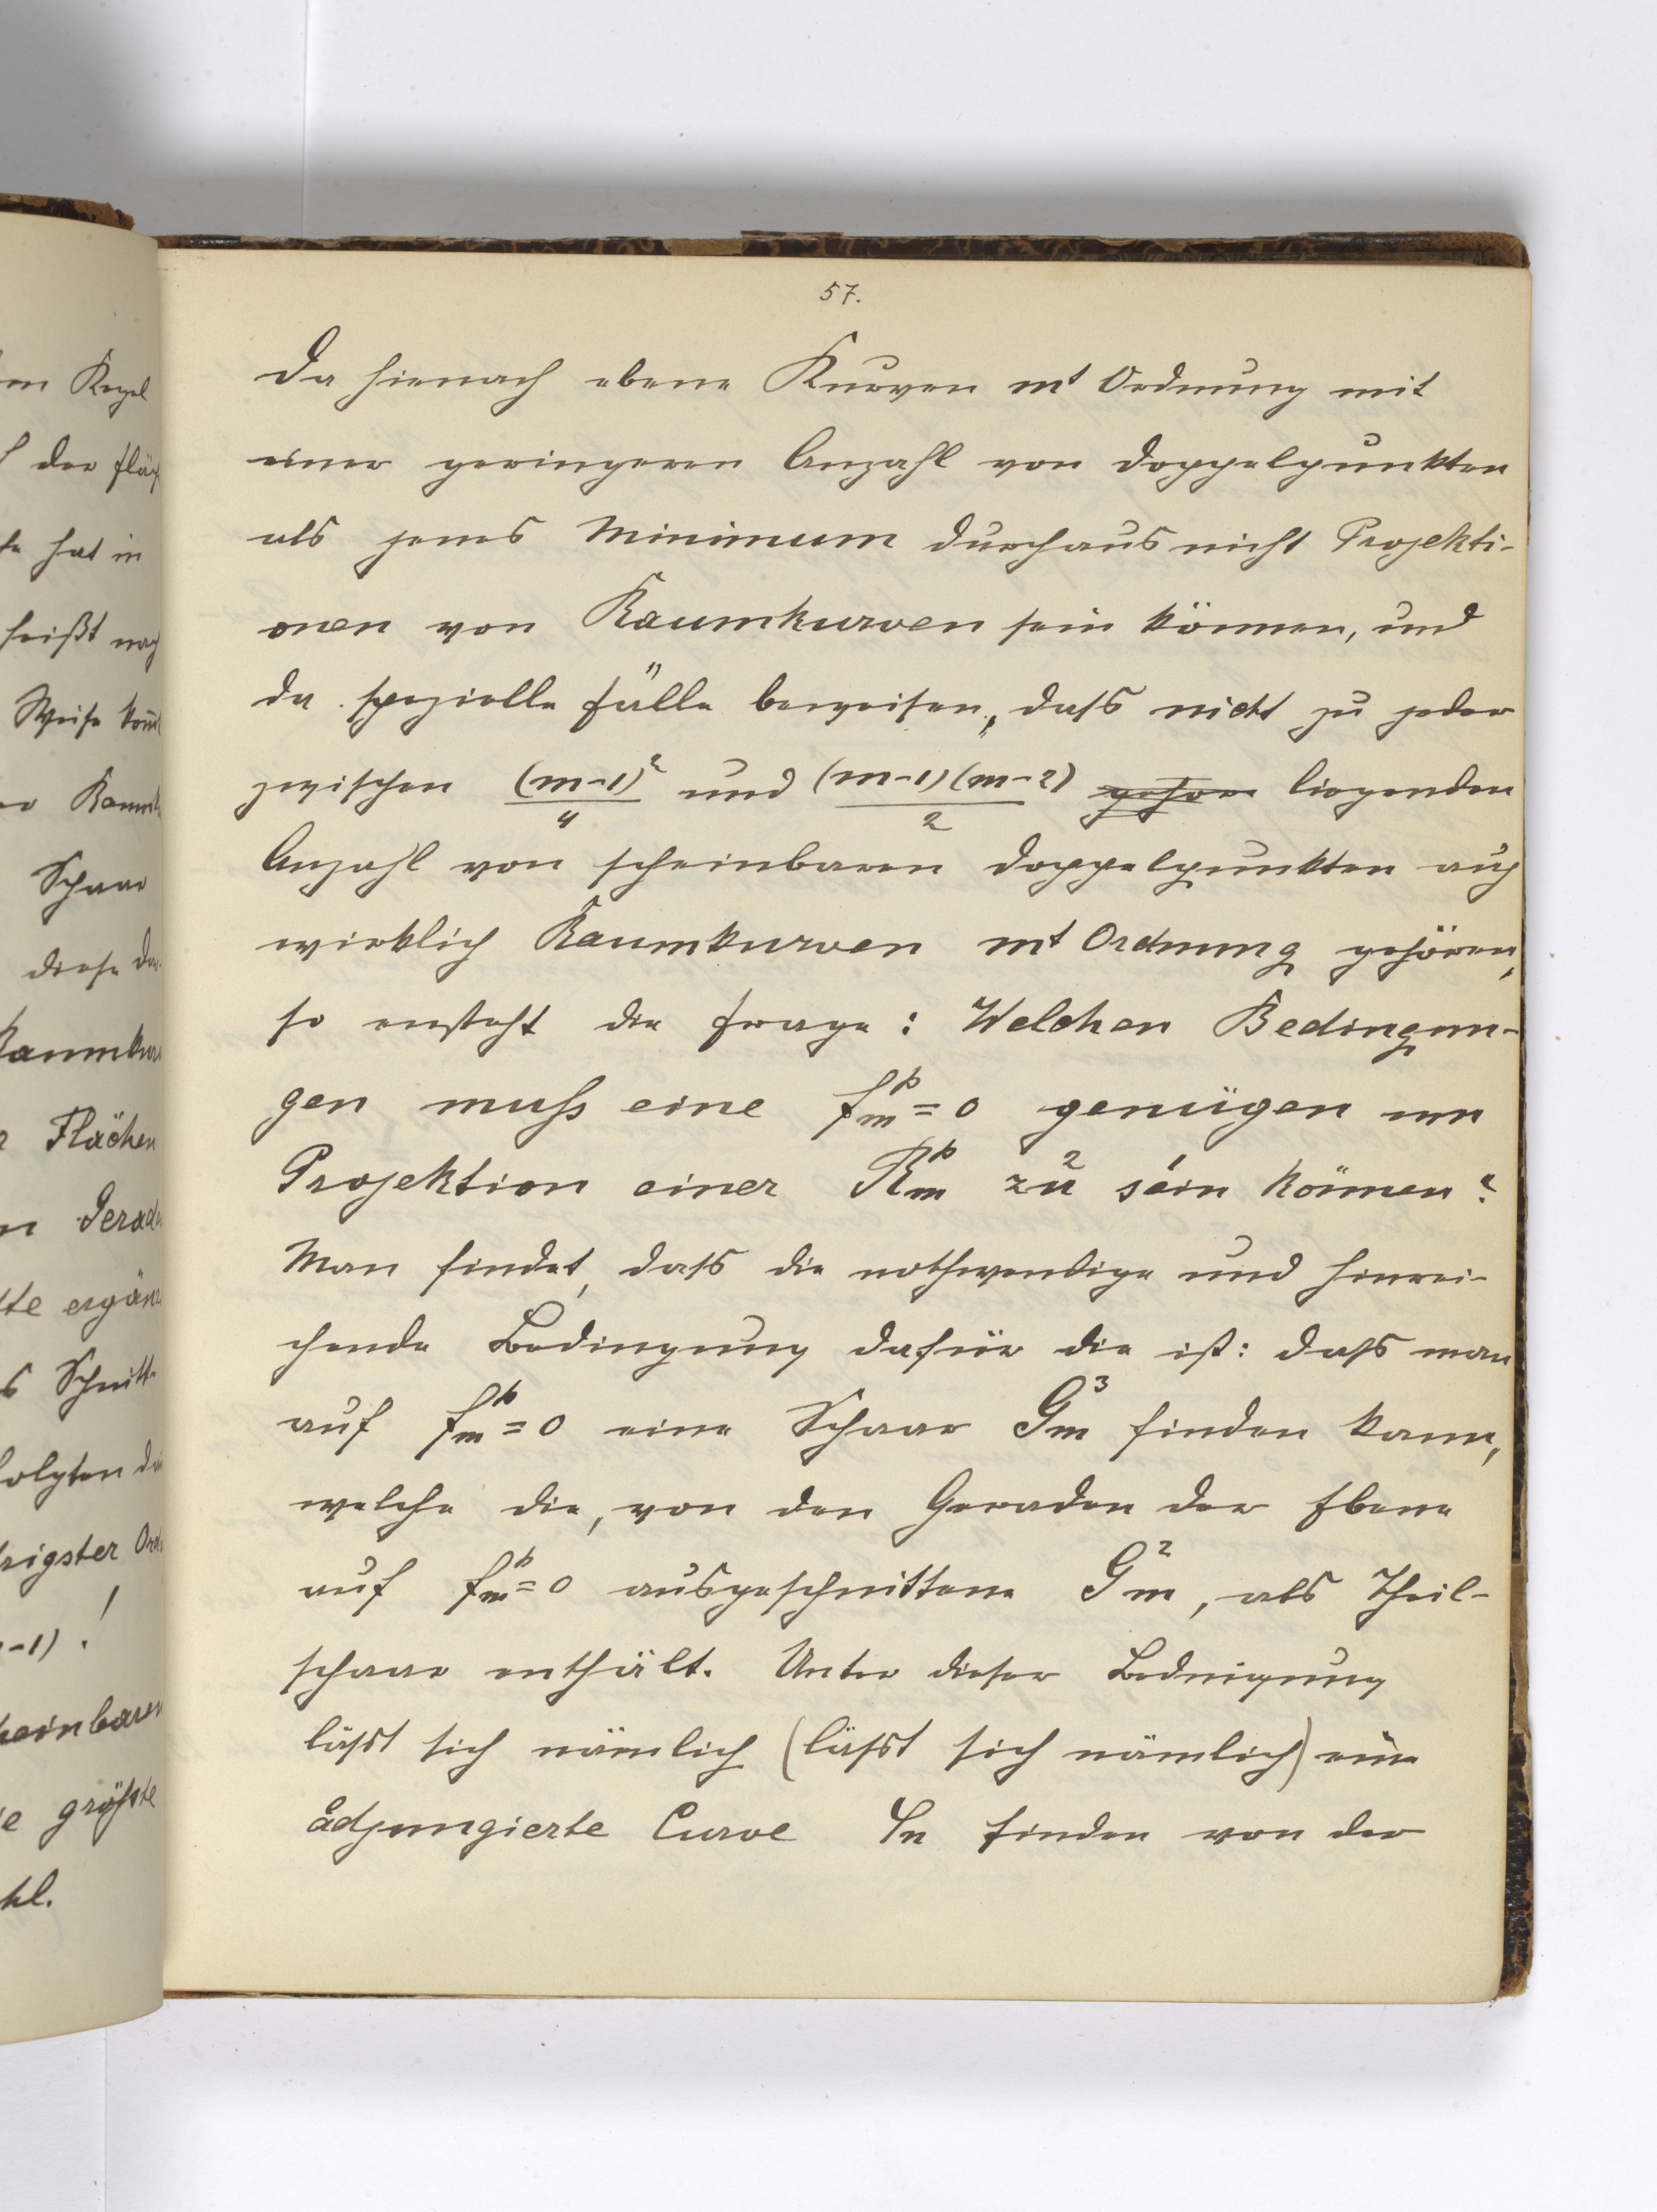 57.
Da hienach ebene Kurven mt Ordnung mit
einer geringeren Anzahl von Doppelpunkten
als jenes Minimum durchaus nicht Projekti-
onen von Raumkurven sein können, und
da spezielle Fälle beweisen, dass nicht zu jeder
zwischen (m-1)²/4 und (m-1)(m-2)/2 liegenden
Anzahl von scheinbaren Doppelpunkten auch
wirklich Raumkurven mt Ordnung gehören,
so ensteht die Frage: Welchen Bedingun-
gen muss eine f_m^p = 0 genügen um
Projektion einer R_m^p zu sein können?
Man findet, dass die nothwendige und hinrei-
chende Bedingung dafür die ist: dass man
auf f_m^p = 0 eine Schaar G_m^3 finden kann,
welche die, von den Geraden der Ebene
auf f_m^p = 0 ausgeschnittene G_m^2, als Theil-
schaar enthält. Unter dieser Bedingung
lässt sich nämlich (lässt sich nämlich) eine
adjungierte Curve finden von der